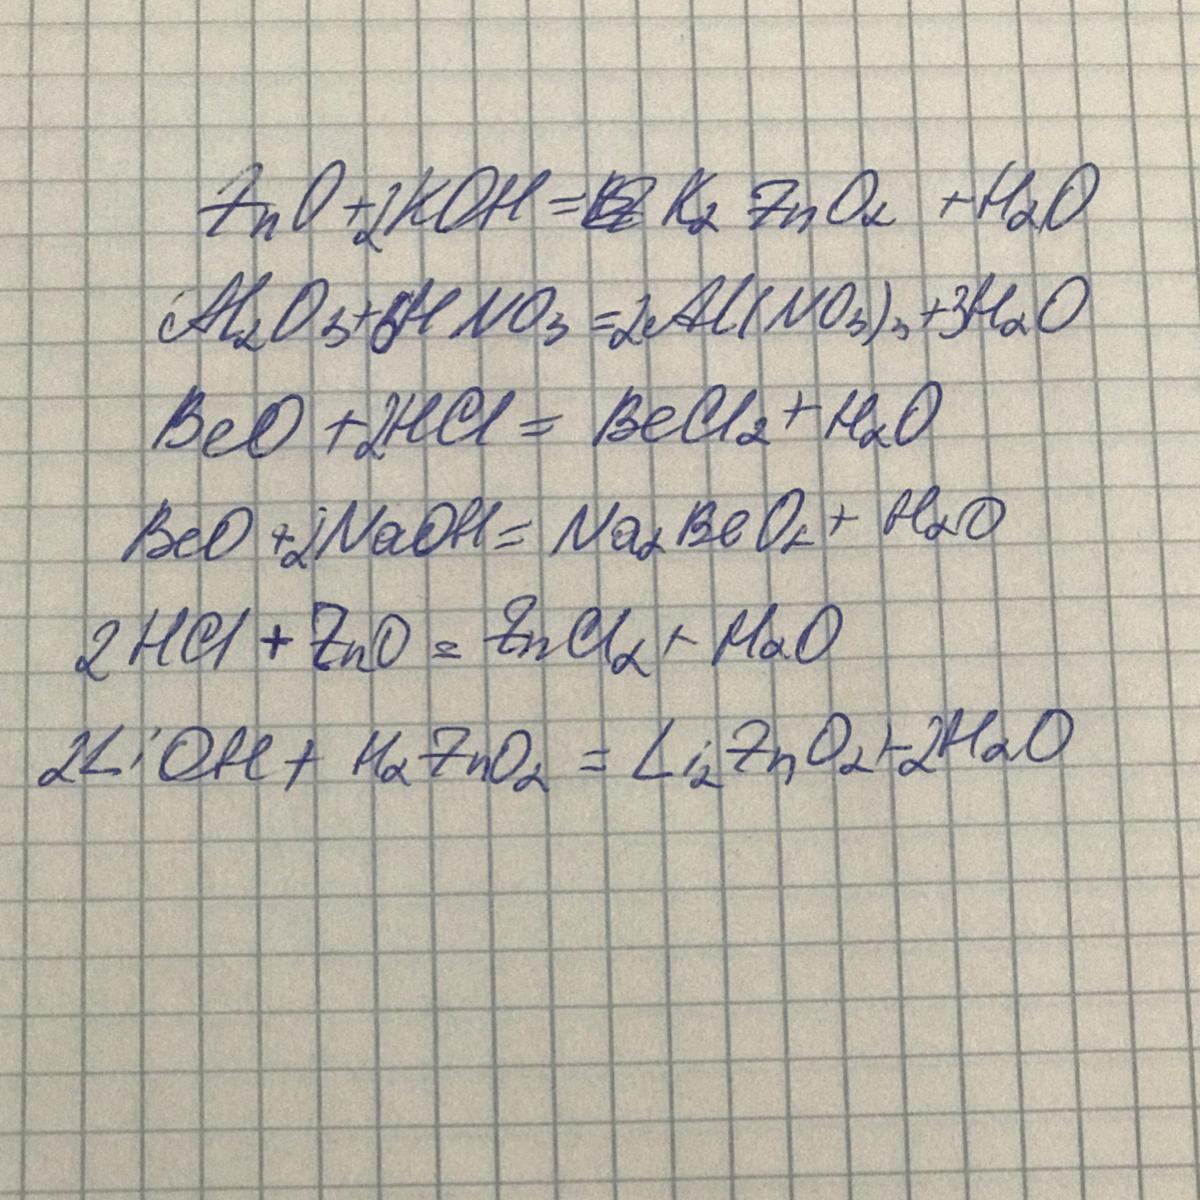 ZnO+2KOH= K₂ZnO₂ +H₂O
Al₂O₃+6HNO₃=2Al(NO₃)₃+3H₂O
BeO+2HCl= BeCl₂+H₂O
BeO+2NaOH= Na₂BeO₂+ H₂O
2HCl+ZnO= ZnCl₂+ H₂O
2LiOH+ H₂ZnO₂ = Li₂ZnO₂+2H₂O